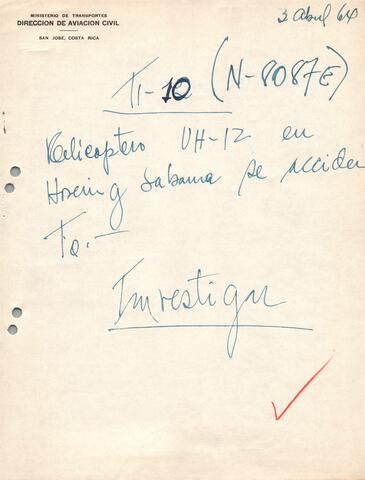 MINISTERIO DE TRANSPORTES
DIRECCION DE AVIACION CIVIL
SAN JOSE, COSTA RICA
3 Abril 64
TI-10 (N-8087E)
Helicoptero UH-12 en
Hovering Sabana se acciden
To.—
Investigar